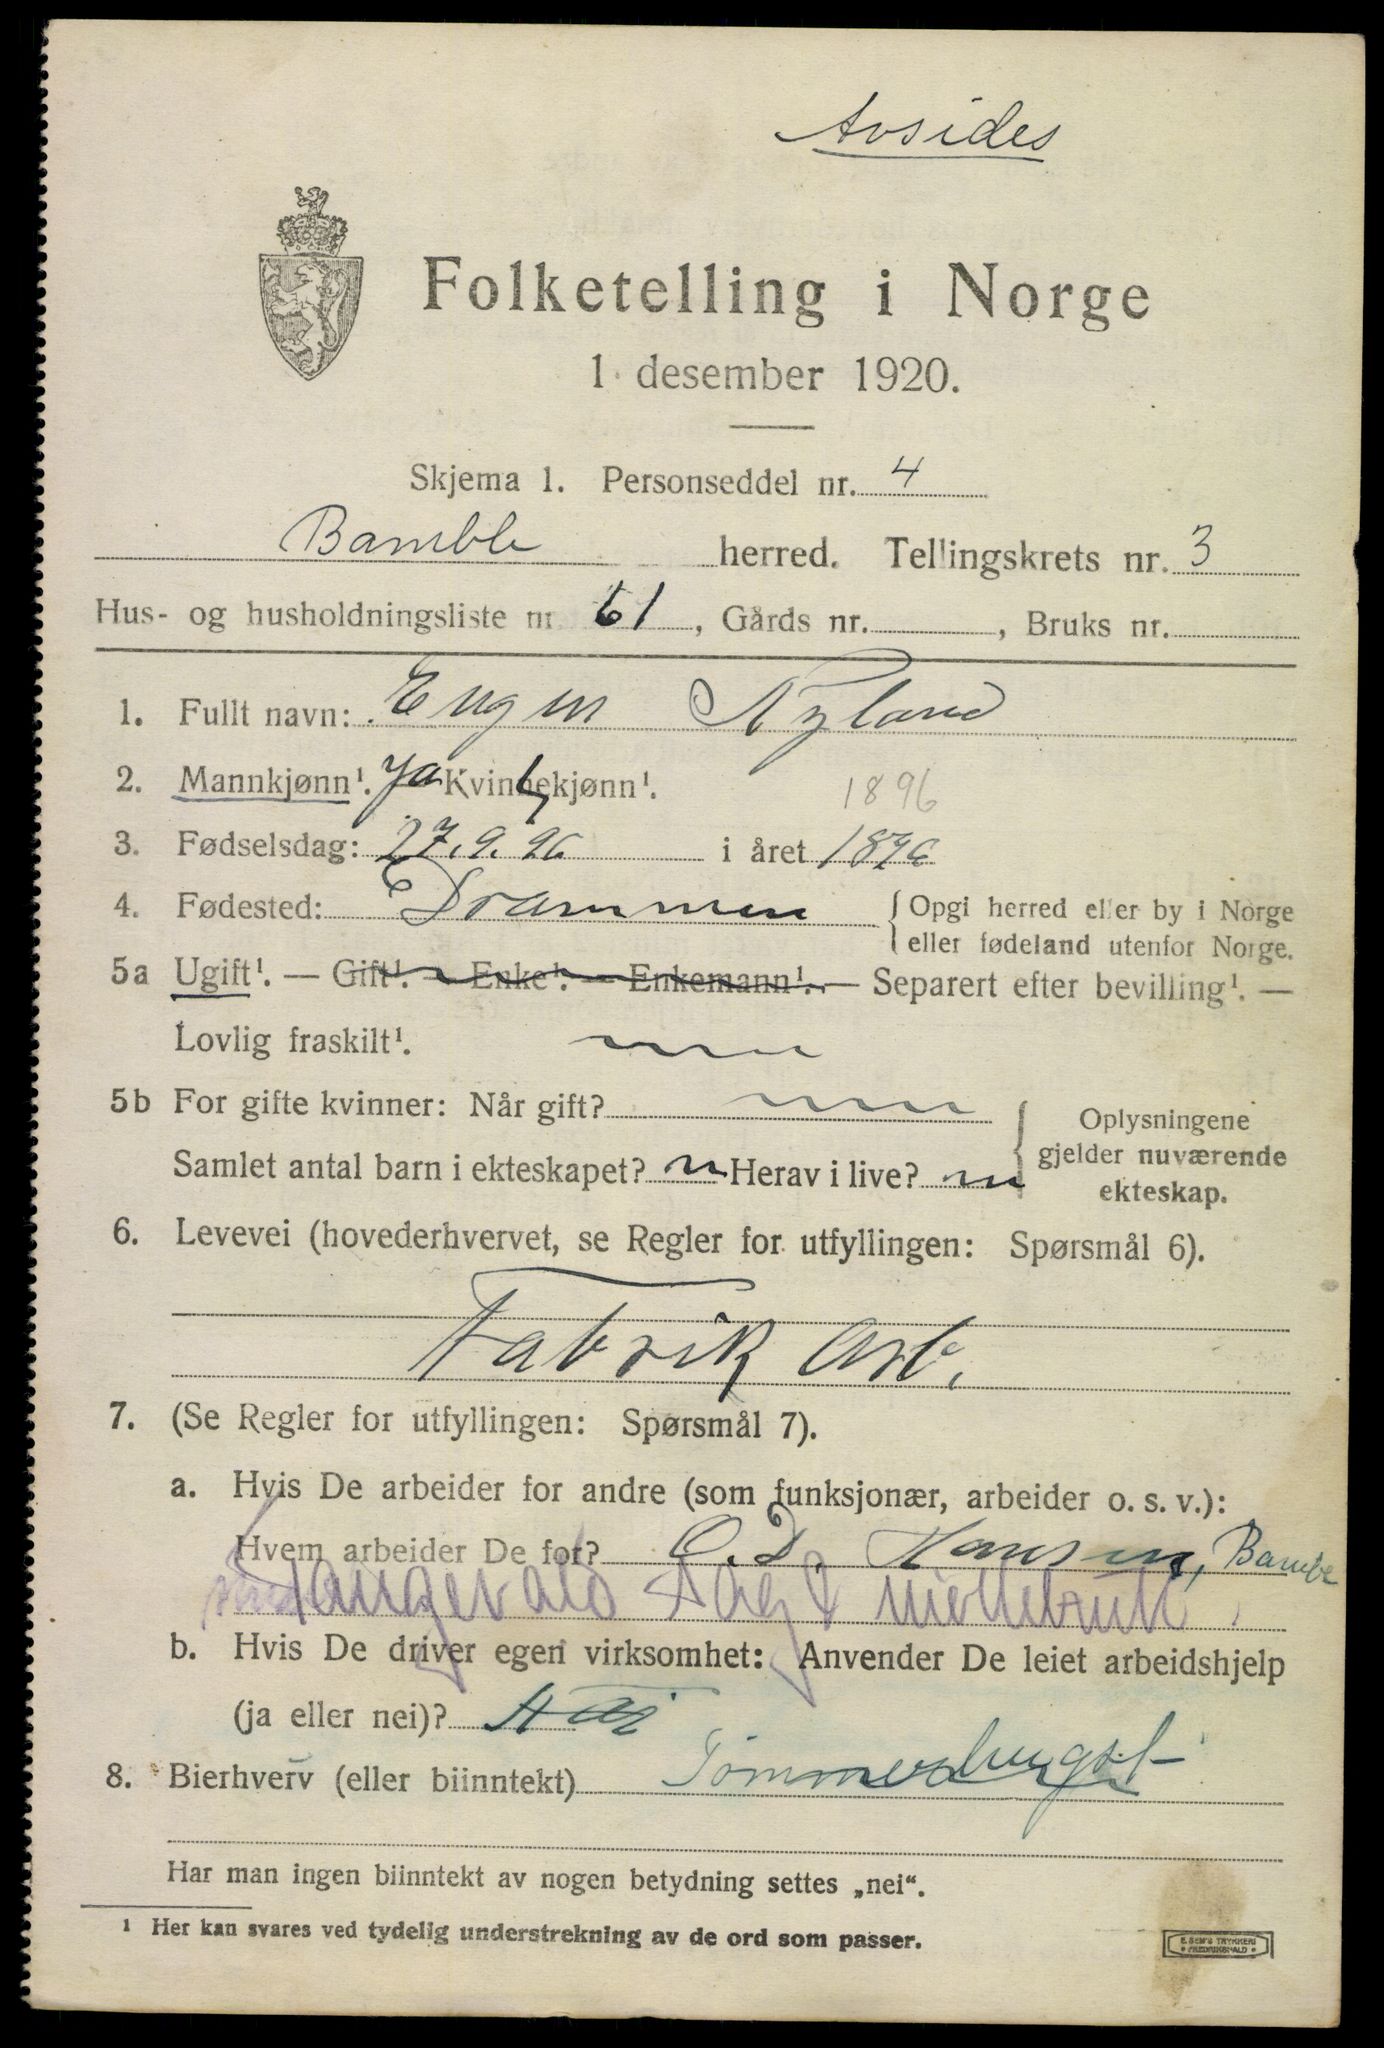 Avsides
Folketelling i Norge
1 desember 1920.
Skjema 1. Personseddel nr. 4
Bamble herred. Tellingskrets nr. 3
Hus- og husholdningsliste nr 61, Gårds nr. , Bruks nr.
1. Fullt navn: Eugen Nyland
2. Mannkjønn¹. Ja Kvinnekjønn¹.
1896
3. Fødselsdag: 27.9.96 i året 1896
4. Fødested: Drammen {Opgi herred eller by i Norge
eller fødeland utenfor Norge.
5a Ugift¹. — Gift¹. — Enke¹. — Enkemann¹. — Separert efter bevilling¹. —
Lovlig fraskilt¹.
5b For gifte kvinner: Når gift?
Oplysningene
gjelder nuværende
ekteskap.
Samlet antal barn i ekteskapet? Herav i live?
6. Levevei (hovederhvervet, se Regler for utfyllingen: Spørsmål 6).
Fabrik Arb.
7. (Se Regler for utfyllingen: Spørsmål 7).
a. Hvis De arbeider for andre (som funksjonær, arbeider o. s. v.):
Hvem arbeider De for? O. D. Hansen, Bamble
Sag & møllebruk
b. Hvis De driver egen virksomhet: Anvender De leiet arbeidshjelp
(ja eller nei)? Nei
8. Bierhverv (eller biinntekt) Tømmerhugst
Har man ingen biinntekt av nogen betydning settes „nei“.
¹ Her kan svares ved tydelig understrekning av de ord som passer.
E. SEM'S TRYKKERI
FREDRIKSHALD